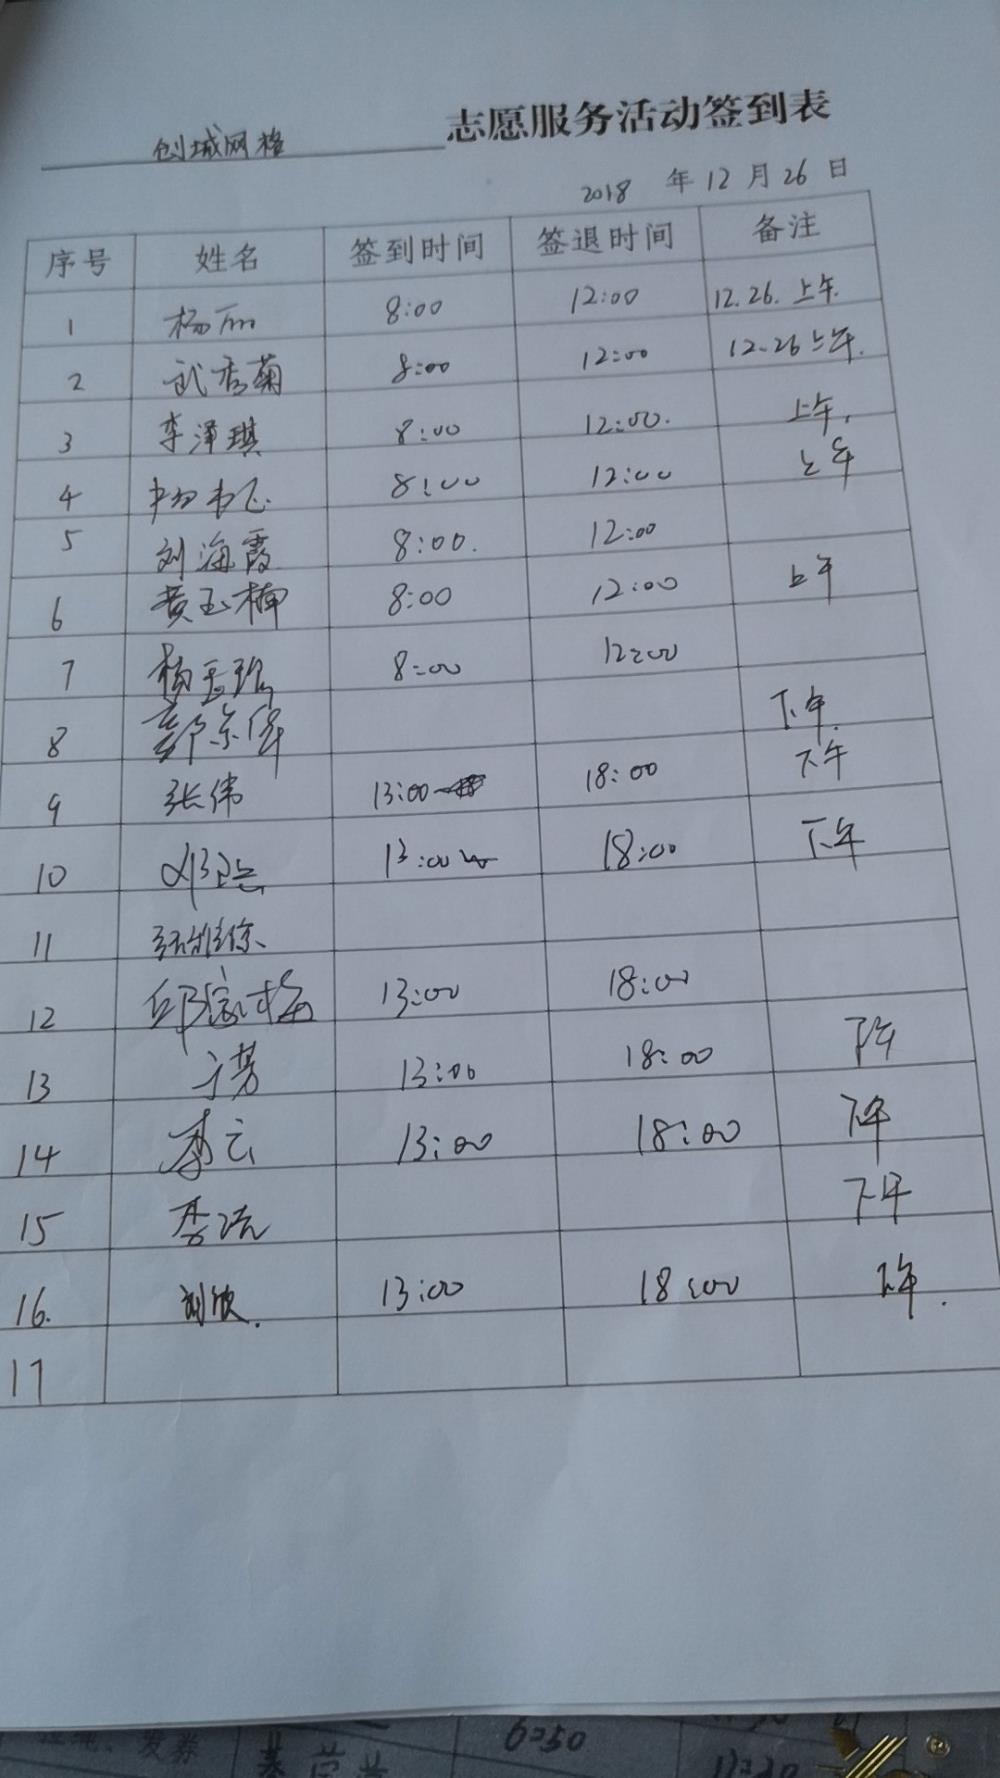 创城网格 志愿服务活动签到表
2018 年 12 月 26 日
序号 姓名 签到时间 签退时间 备注
1 杨丽 8:00 12:00 12.26.上午.
2 武秀菊 8:00 12:00 12.26上午.
3 李泽琪 8:00 12:00. 上午.
4 8:00 12:00 上午
5 刘海霞 8:00. 12:00
6 黄玉楠 8:00 12:00 上午
7 8:00 12:00
8 下午.
9 张伟 13:00 18:00 下午
10 13:00 18:00 下午
11
12 13:00 18:00
13 13:00 18:00 下午
14 李云 13:00 18:00 下午
15 下午
16. 刘欣. 13:00 18:00 下午.
17
6:50